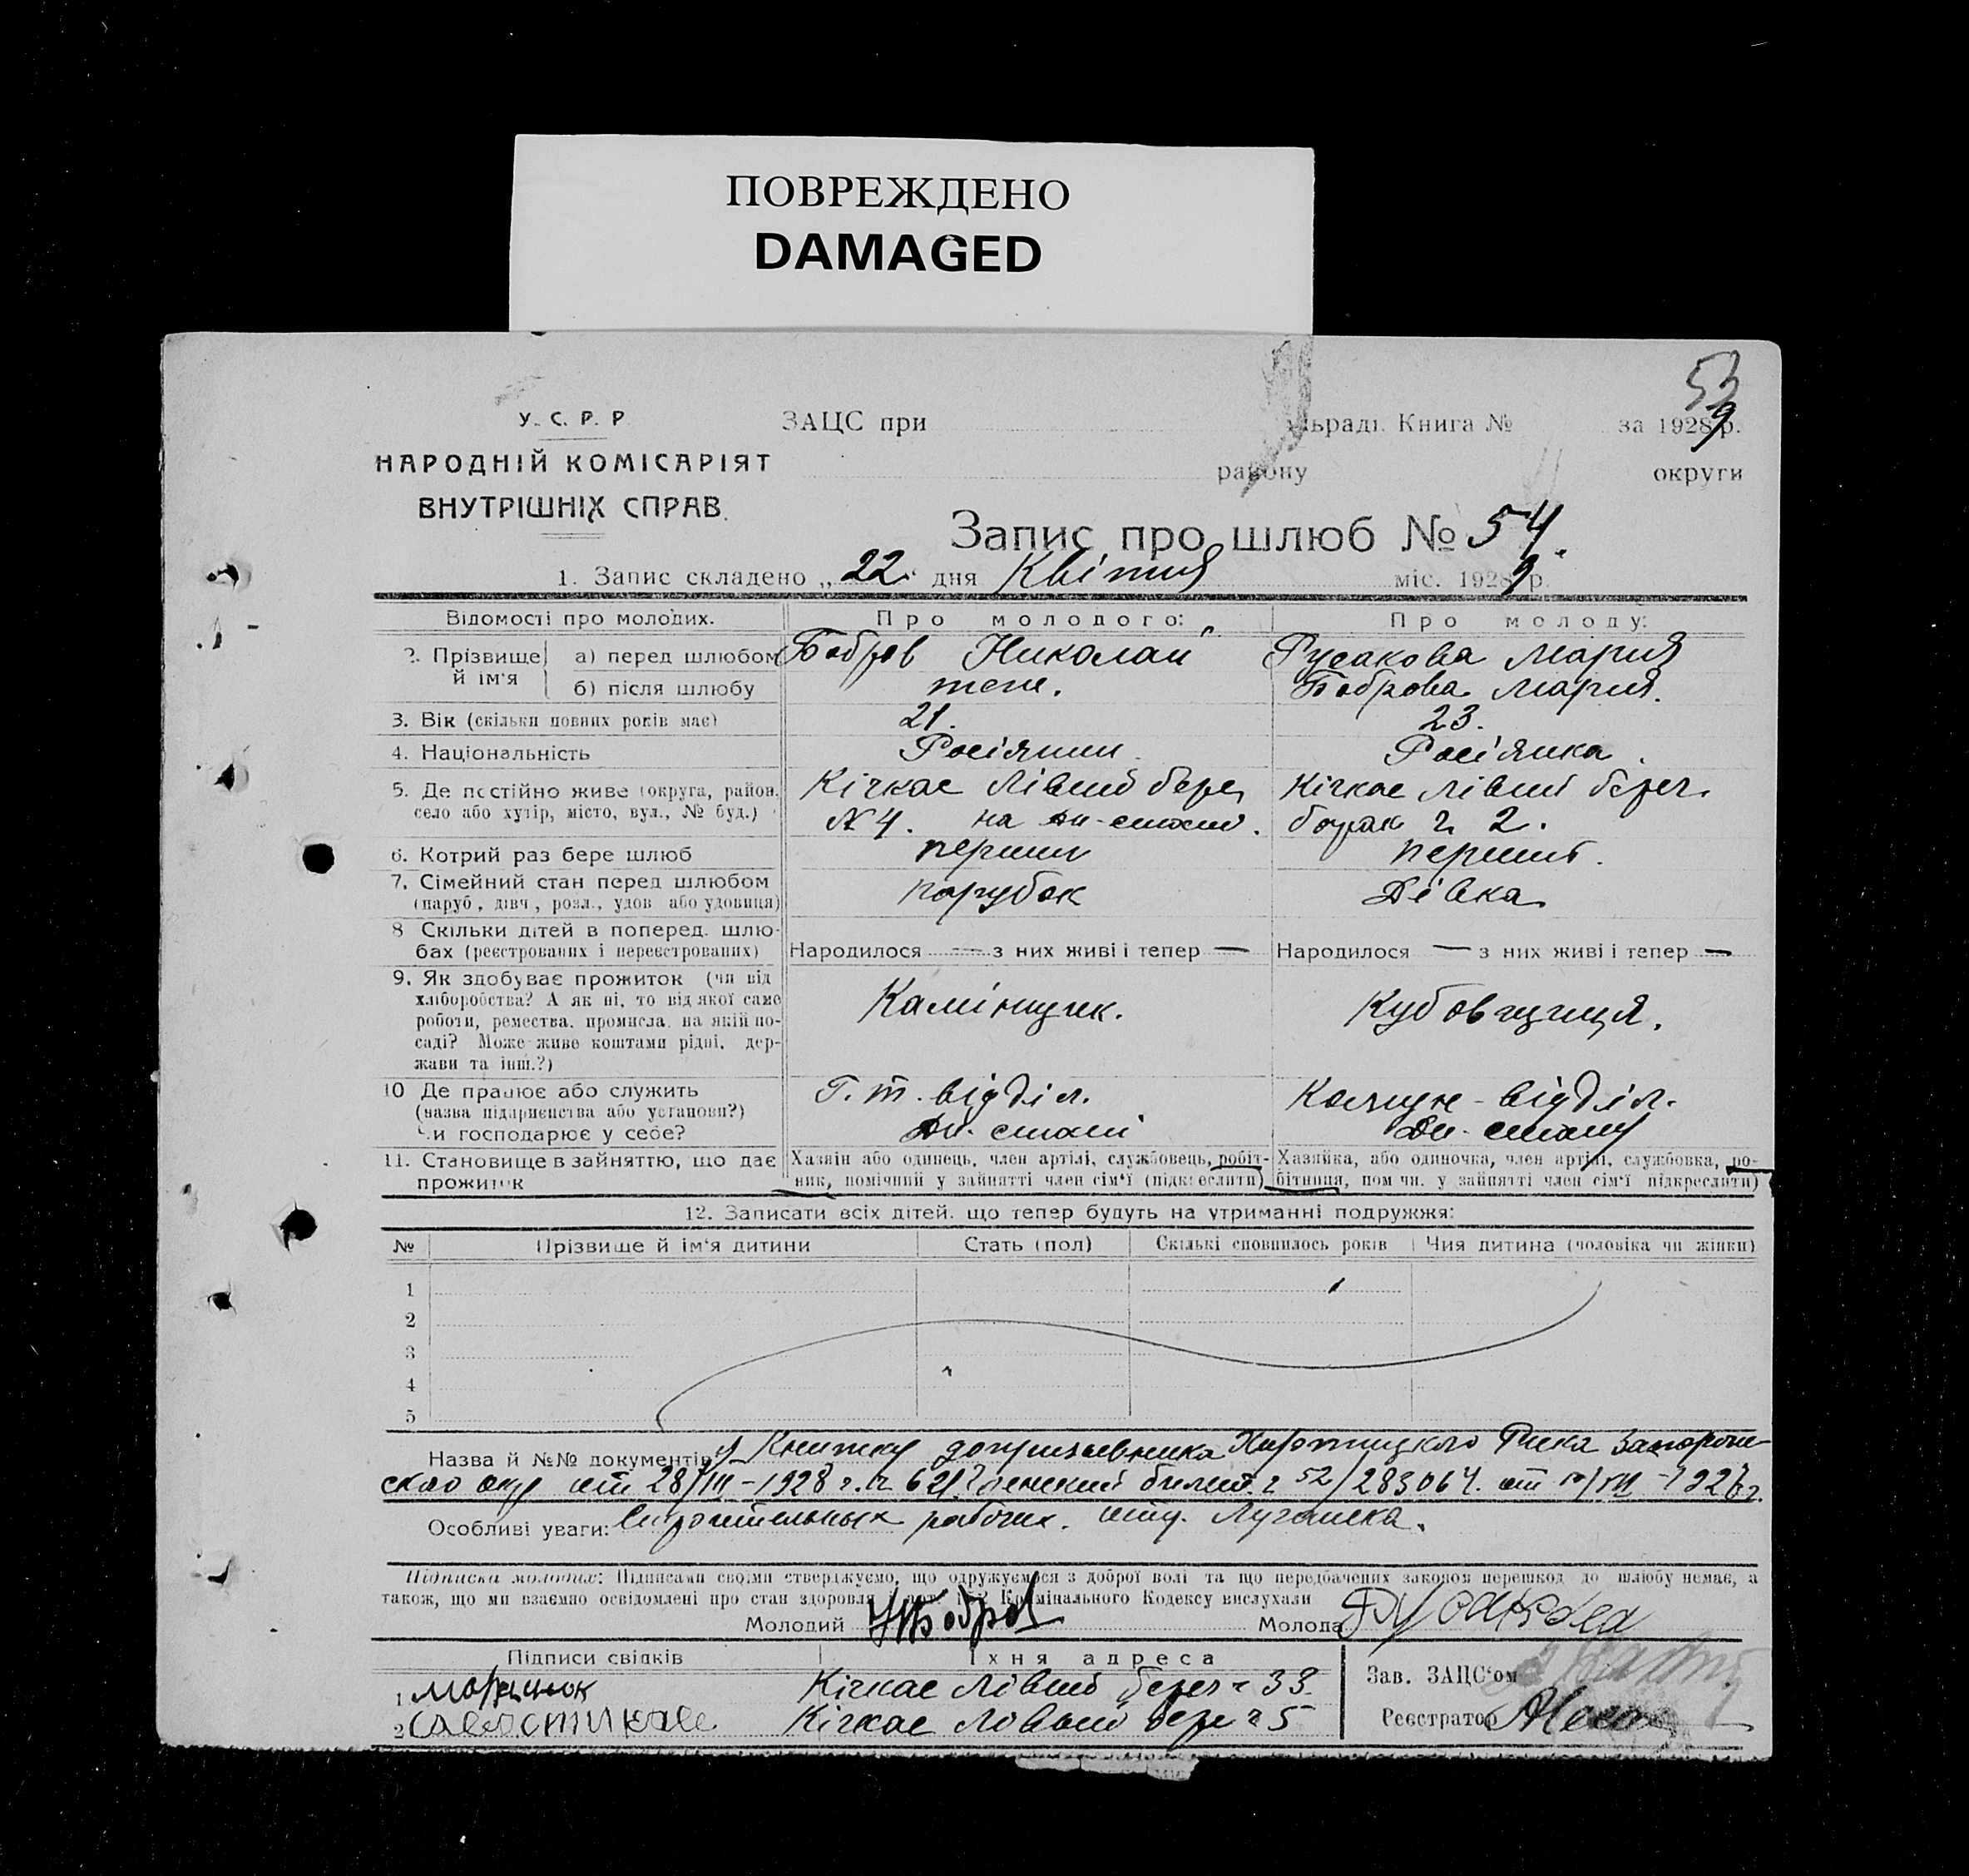 ПОВРЕЖДЕНО
DAMAGED
53
У. С. Р. Р.
НАРОДНІЙ КОМІСАРІЯТ
ВНУТРІШНІХ СПРАВ.
ЗАЦС при льраді. Книга № за 1929 р.
району округи
Запис про шлюб № 54.
1. Запис складено „22“ дня Квітня міс. 1929 р.
Відомості про молодих. Про молодого: Про молоду:
2. Прізвище й ім'я а) перед шлюбом Бобров Николай Русакова Мария
б) після шлюбу теж. Боброва Мария.
3. Вік (скільки повних років має) 21. 23.
4. Національність Росіянин Росіянка.
5. Де постійно живе (округа, район, Кічкас Лівий бере Кічкас лівий берег.
село або хутір, місто, вул., № буд.) № 4. на барак 2.
6. Котрий раз бере шлюб перший перший.
7. Сімейний стан перед шлюбом парубок Дівка
(паруб., дівч., розл., удов. або удовиця)
8 Скільки дітей в поперед. шлю-
бах (реєстрованих і нереєстрованих) Народилося — з них живі і тепер — Народилося — з них живі і тепер —
9. Як здобуває прожиток (чи від
хліборобства? А як ні, то від якої саме Камінщик. Кубовщиця.
роботи, ремества, промисла, на якій по-
саді? Може живе коштами рідні, дер-
жави та інш.?)
10 Де працює або служить Г. т. відділ. Комун-відділ.
(назва підприємства або установи?) Дн.
Чи господарює у себе? Дн.
11. Становище в зайняттю, що дає Хазяїн або одинець, член артілі, службовець, робіт- Хазяйка, або одиночка, член артілі, службовка, ро-
прожиток ник, помічний у зайнятті член сім'ї (підкреслити) бітниця, помічн. у зайнятті член сім'ї підкреслити)
12. Записати всіх дітей, що тепер будуть на утриманні подружжя:
№ Прізвище й ім'я дитини Стать (пол) Скількі сповнилось років Чия дитина (чоловіка чи жінки)
1
2
3
4
5
Назва й №№ документів Книжку допризывника Рика Запорож-
ского окр 28/III-1928 г. 621. Членский билет 52/283064. от
Особливі уваги: Строительных рабочих. Луганска.
Підписка молодих: Підписами своїми стверджуємо, що одружуємося з доброї волі та що передбачених законом перешкод до шлюбу немає, а
також, що ми взаємно освідомлені про стан здоровля Кримінального Кодексу вислухали
Молодий НБобров Молода Русакова
Підписи свідків Їхня адреса Зав. ЗАЦС'ом
1 Кічкас Лівий берег 33.
2 Кічкас 5 Реєстратор